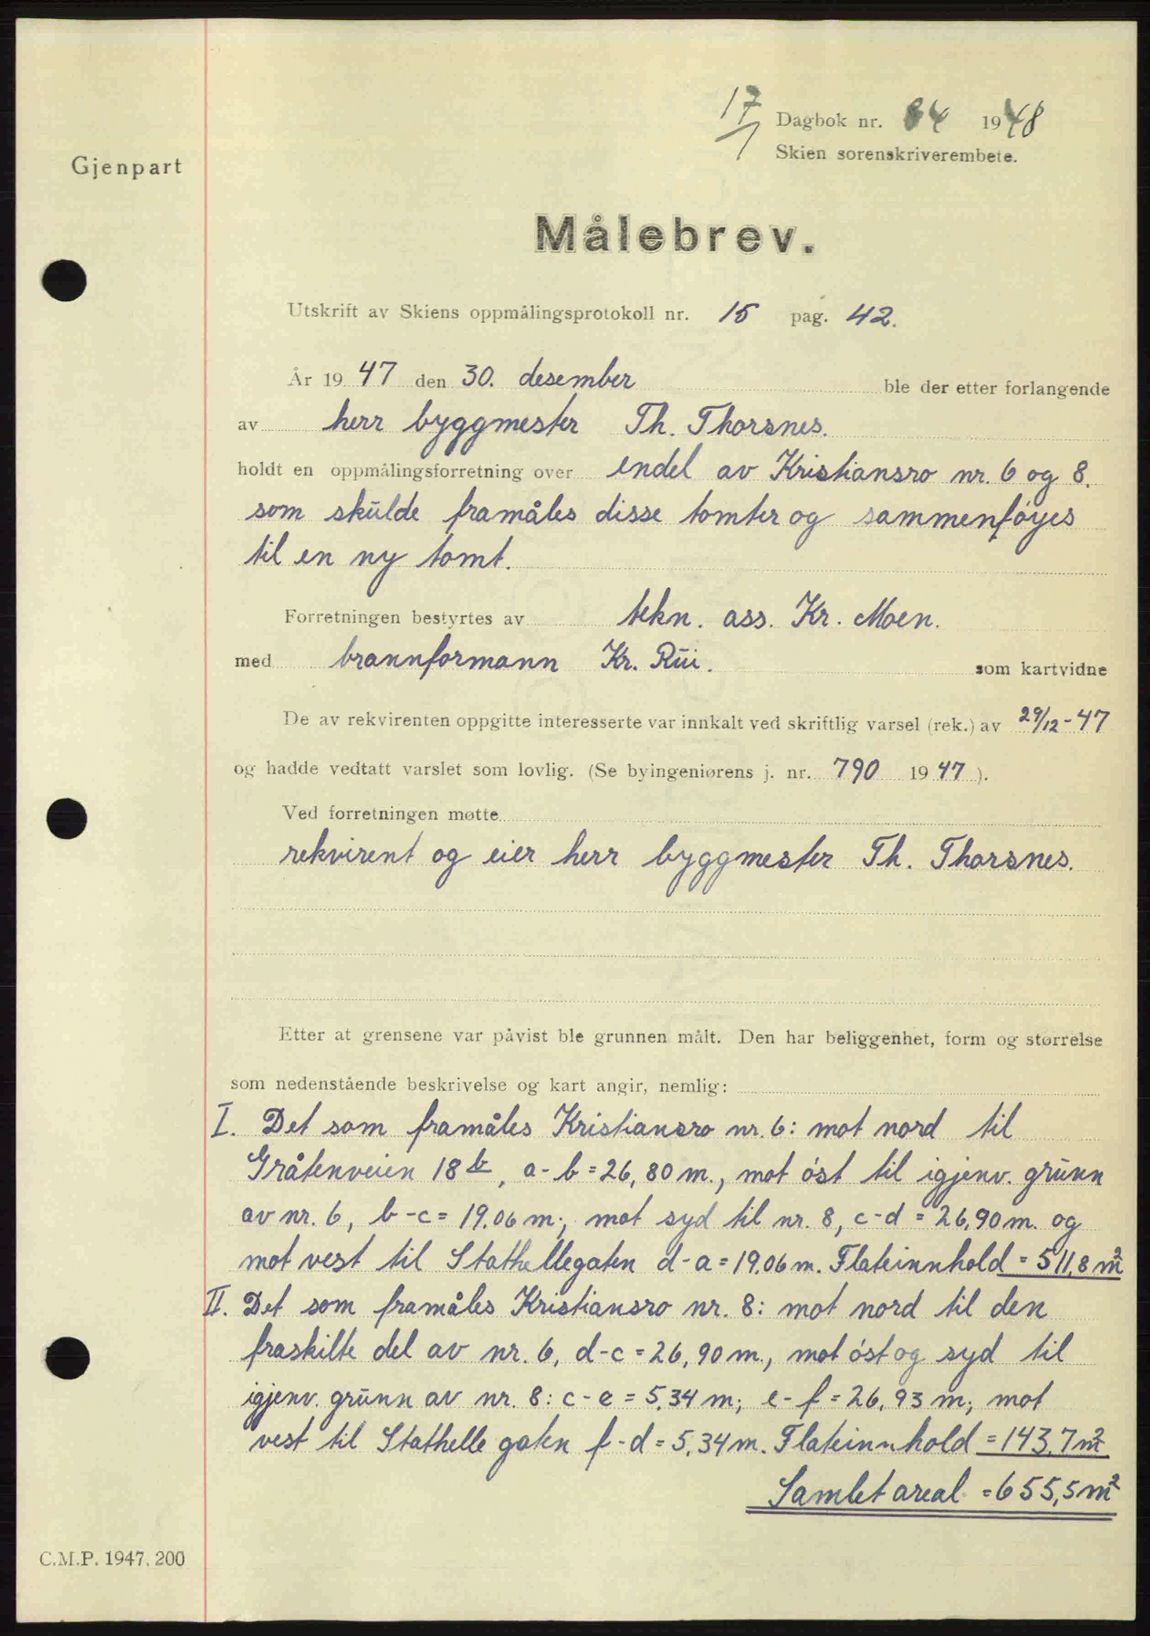 17/1 Dagbok nr. 84 1948
Skien sorenskriverembete.
Gjenpart
Målebrev.
Utskrift av Skiens oppmålingsprotokoll nr. 15 pag. 42.
År 1947 den 30. desember ble der etter forlangende
av herr byggmester Th. Thorsnes.
holdt en oppmålingsforretning over endel av Kristiansro nr. 6 og 8.
som skulde framåles disse tomter og sammenføyes
til en ny tomt.
Forretningen bestyrtes av tekn. ass. Kr. Moen.
med brannformann Kr. Rui. som kartvidne
De av rekvirenten oppgitte interesserte var innkalt ved skriftlig varsel (rek.) av 29/12-47
og hadde vedtatt varslet som lovlig. (Se byingeniørens j. nr. 790 1947).
Ved forretningen møtte
rekvirent og eier herr byggmester Th. Thorsnes.
Etter at grensene var påvist ble grunnen målt. Den har beliggenhet, form og størrelse
som nedenstående beskrivelse og kart angir, nemlig:
I. Det som framåles Kristiansro nr. 6: mot nord til
Gråtenveien 18b, a-b=26,80 m., mot øst til igjenv. grunn
av nr. 6, b-c=19.06 m., mot syd til nr. 8, c-d=26,90 m. og
mot vest til Stathellegaten d-a=19.06 m. Flateinnhold=511,8 m²
II. Det som framåles Kristiansro nr. 8: mot nord til den
fraskilte del av nr. 6, d-c=26,90 m., mot øst og syd til
igjenv. grunn av nr. 8: c-e=5,34 m; e-f=26,93 m; mot
vest til Stathelle gaten f-d=5,34 m. Flateinnhold=143,7 m²
Samlet areal=655,5 m²
C.M.P. 1947. 200